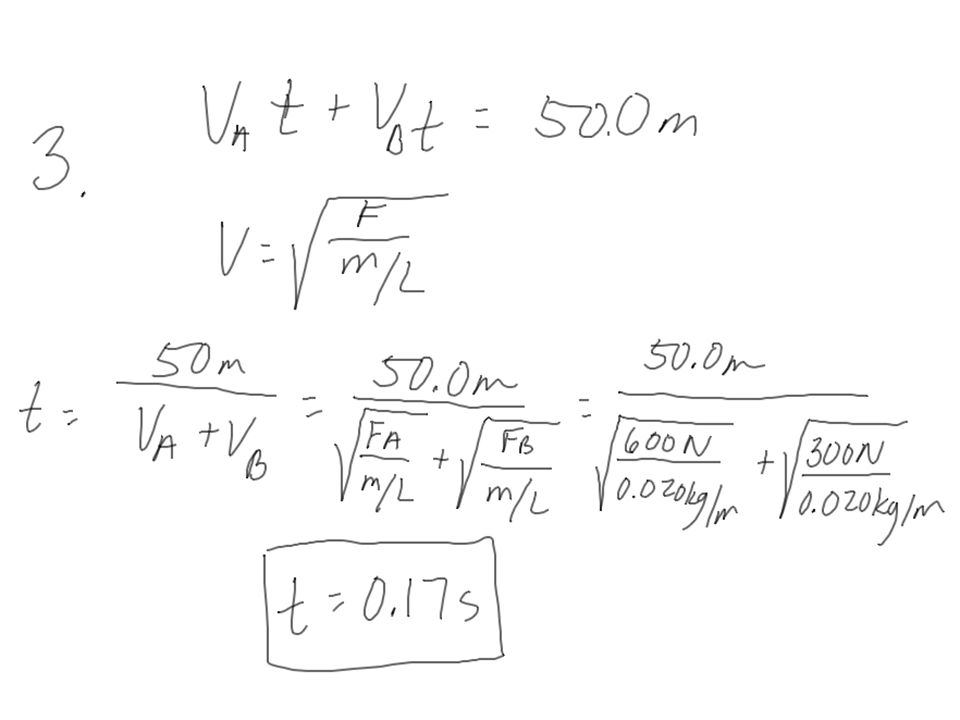 3. V_A t + V_B t = 50.0 m
V = √(F / (m/L))
t = 50 m / (V_A + V_B) = 50.0 m / (√(F_A / (m/L)) + √(F_B / (m/L))) = 50.0 m / (√(600 N / 0.020 kg/m) + √(300 N / 0.020 kg/m))
t = 0.17 s